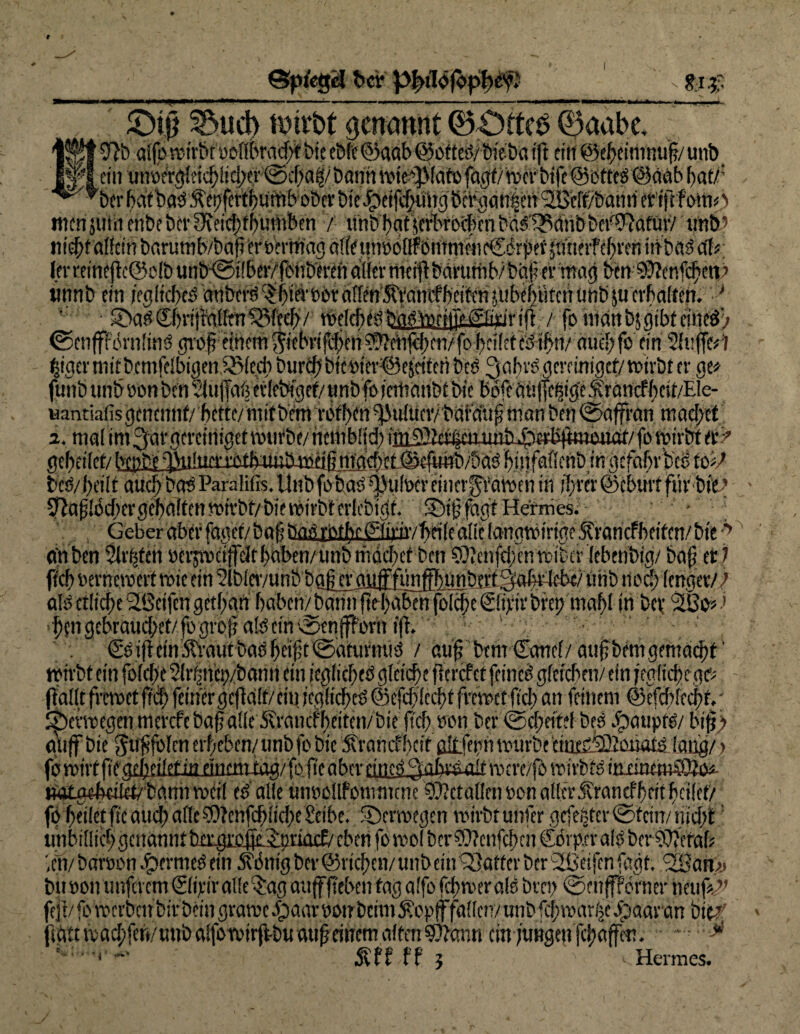 Spiegel der Philosophey. 813
Diß Buch wirdt genannt GOttes Gaabe.
UNd also wirdt vollbracht die edle Gaab Gottes/ die da ist ein Geheimnuß/ und
ein unvergleichlicher Schatz/ dann wie Plato sagt/ wer dise Gottes Gaab hat/
der hat das Kepserthumb ober die Herrschung der gantzen Welt/ dann er ist kom-
men zum ende der Reichthumben / und hat zerbrochen das Band der Natur/ und
nicht allein darumb/ daß er vermag alle unvollkommene Cörper zuuerkehren in das al-
ler reineste Gold und Silber/ sonderen aller meist darumb/ daß er mag den Menschen
unnd ein jegliches anders Thier vor allen Kranckheiten zubehüten und zu erhalten.
Das Christallen Blech/ welches das weisse Elixir ist / so man bz gibt eines
Senffkörnlins groß einem Fiebrischen Menschen/ so heilet es ihn/ auch so ein Aussetz-
tziger mit demselbigen Blech durch die vier Gezeiten des Jahrs gereiniget/ wirdt er ge-
sund und von den Aussatz erlediget/ und so jemandt die böse aussetzige Kranckheit/ Ele-
uantiasis genennt/ hette/ mit dem rothen Puluer/ darauß man den Saffran machet
2. mal im Jar gereiniget wurde/ nemblich im Mertzen und Herbstmonat/ so wirdt er
geheilet/ beyde Puluer roth und weiß machet Gesund/ das hinfallend in gefahr des to-
des/ heilt auch das Paralisis. Und so das Pulver einer Frawen in ihrer Geburt für die
Naßlöcher gehalten wirdt/ die wirdt erledigt. Diß sagt Hermes.
Geber aber saget/ daß das rothe Elixir/ heile alle langwirige Kranckheiten/ die
an den Ärtzten verzweiffelt haben/ und machet den Menschen wider lebendig/ daß er
sich vernewert wie ein Adler/ und daß er auff fünffhundert Jahr lebe/ und noch lenger/
als etliche Weisen gethan haben/ dann sie haben solche Elixir drey mahl in der Wo-
chen gebrauchet/ so groß als ein Senffkorn ist.
Es ist ein Kraut das heißt Saturnus / auß dem Canel/ auß dem gemacht
wirdt ein solche Artzney/ dann ein jegliches gleiche stercket seines gleichen/ ein jegliche ge-
stallt frewet sich seiner gestalt/ ein jegliches Geschlecht frewet sich an seinem Geschlecht.
Derwegen mercke daß alle Kranckheiten/ die sich von der Scheitel des Haupts/ biß
auff die Fußsolen erheben/ und so die Kranckheit alt seyn wurde eines Monats lang/
so wirt sie geheilet in einem tag/ so sie aber eines Jahrs alt were/ so wirdts in einem Mo-
nat geheilet/ dann weil es alle unvollkommene Metallen von aller Kranckheit heilet/
so heilet sie auch alle Menschliche Leibe. Derwegen wirdt unser gesetzter Stein/ nicht
unbillich genannt der grosse Tyriack/ eben so wol der Menschen Cörper als der Metal-
len/ darvon Hermes ein König der Grichen/ und ein Vatter der Weisen sagt. Wann
du von unserem Elixir alle Tag auff sieben tag also schwer als drey Senffkörner neuf-
sest/ so werden dir dein grawe Haar von deim Kopff fallen/ und schwartze Haar an die
statt wachsen/ und also wirst du auß einem alten Mann ein jungen schaffen.
Kkk kk 3 Hermes.